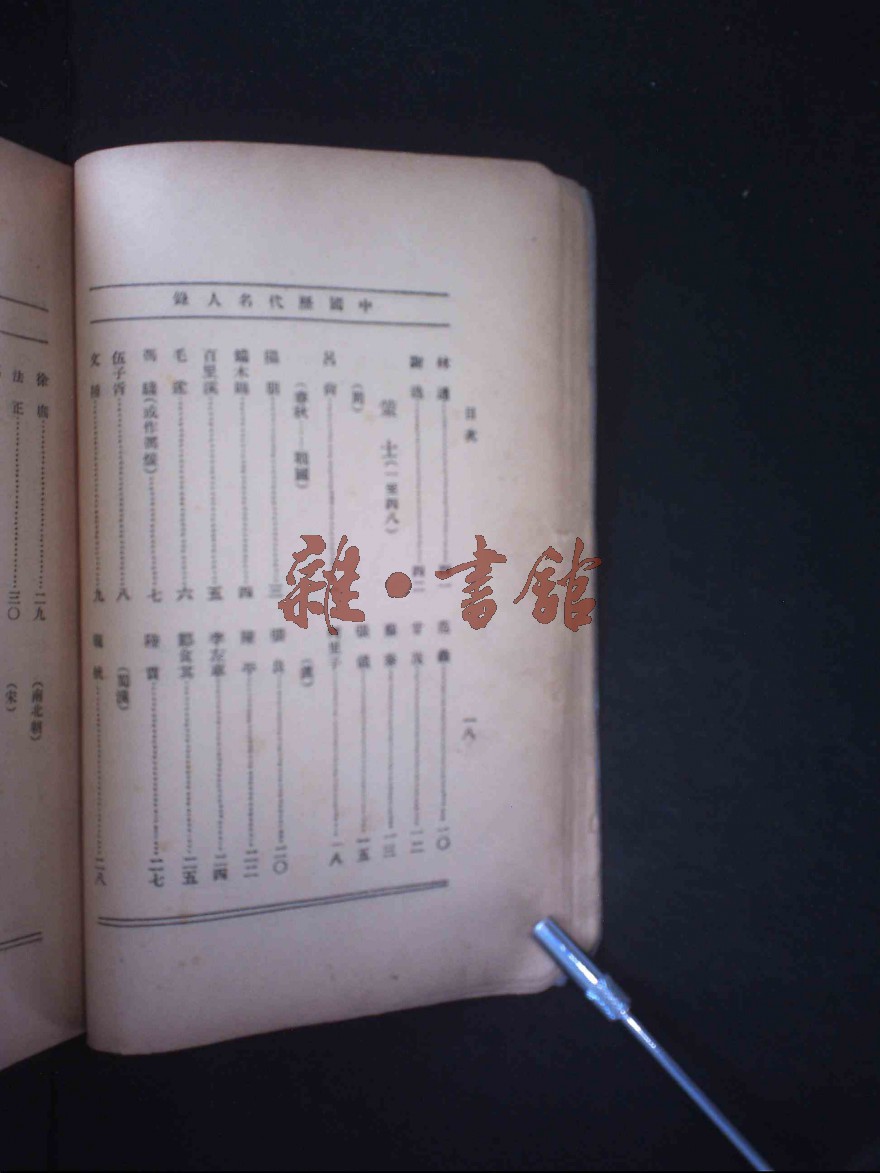 中國歷代名人錄
目次
一八
林逋
謝翱 四二
策士(一至四八)
(周)
呂尚
(春秋—戰國)
三
端木賜 四
百里溪 五
毛遂 六
馮驩(或作馮煖) 七
伍子胥 八
文種 九
范蠡 一〇
甘茂 一二
蘇秦 一三
張儀 一五
一八
(漢)
張良 二〇
陳平 二二
李左車 二四
酈食其 二五
陸賈 二七
(蜀漢)
二八
徐庶 二九
法正 三〇
(南北朝)
(宋)
雜·書館